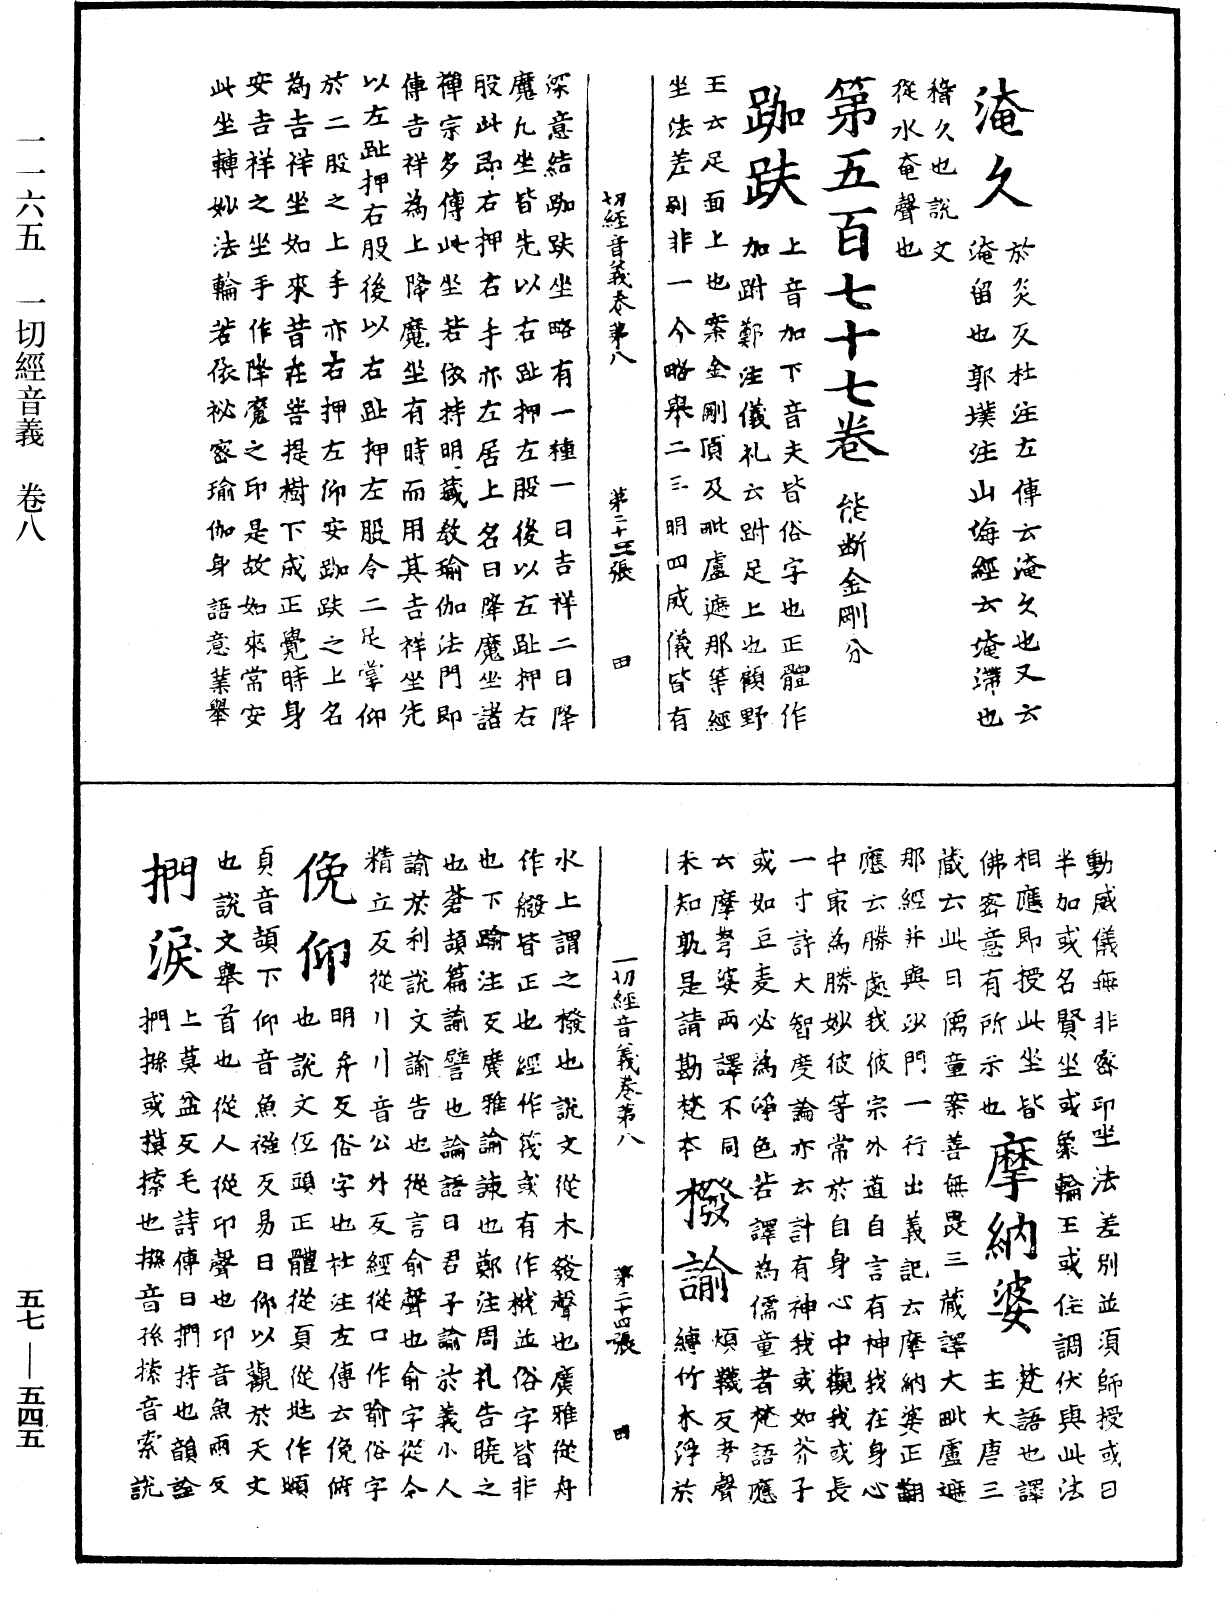 一一六五　一切經音義　卷八
五七—五四五
淹久　於炎反杜注左傳云淹久也又云
淹留也郭璞注山海經云淹滯也
稽久也說文
從水奄聲也
第五百七十七卷　能斷金剛分
跏趺　上音加下音夫皆俗字也正體作
加跗鄭注儀礼云跗足上也顧野
王云足面上也案金剛頂及毗盧遮那等經
坐法差別非一今略舉二三明四威儀皆有
切經音義卷第八　第二十三張　田
深意結跏趺坐略有一種一曰吉祥二曰降
魔凡坐皆先以右趾押左股後以左趾押右
股此即右押右手亦左居上名曰降魔坐諸
禪宗多傳此坐若依持明藏教瑜伽法門即
傳吉祥為上降魔坐有時而用其吉祥坐先
以左趾押右股後以右趾押左股令二足掌仰
於二股之上手亦右押左仰安跏趺之上名
為吉祥坐如來昔在菩提樹下成正覺時身
安吉祥之坐手作降魔之印是故如來常安
此坐轉妙法輪若依祕密瑜伽身語意業舉
動威儀無非密印坐法差別並須師授或曰
半加或名賢坐或象輪王或住調伏與此法
相應即授此坐皆
佛密意有所示也
摩納婆　梵語也譯
主大唐三
藏云此曰儒童案善無畏三藏譯大毗盧遮
那經并與沙門一行出義記云摩納婆正翻
應云勝處我彼宗外道自言有神我在身心
中最為勝妙彼等常於自身心中觀我或長
一寸許大智度論亦云計有神我或如芥子
或如豆麦必為淨色若譯為儒童者梵語應
云摩拏婆兩譯不同
未知孰是請勘梵本
橃諭　煩韈反考聲
縛竹木浮於
一切經音義卷第八　第二十四張　田
水上謂之橃也說文從木發聲也廣雅從舟
作艐皆正也經作筏或有作栰並俗字皆非
也下踰注反廣雅諭諫也鄭注周礼告曉之
也蒼頡篇諭譬也論語曰君子諭於義小人
諭於利說文諭告也從言俞聲也俞字從亼
精立反從巜巜音公外反經從口作喻俗字
俛仰　明弁反俗字也杜注左傳云俛俯
也說文低頭正體從頁從逃作頫
頁音頡下仰音魚襁反易曰仰以觀於天文
也說文舉首也從人從卬聲也卬音魚兩反
捫淚　上莫盆反毛詩傳曰捫持也韻詮
捫㧒或摸㩢也㧒音孫㩢音索說